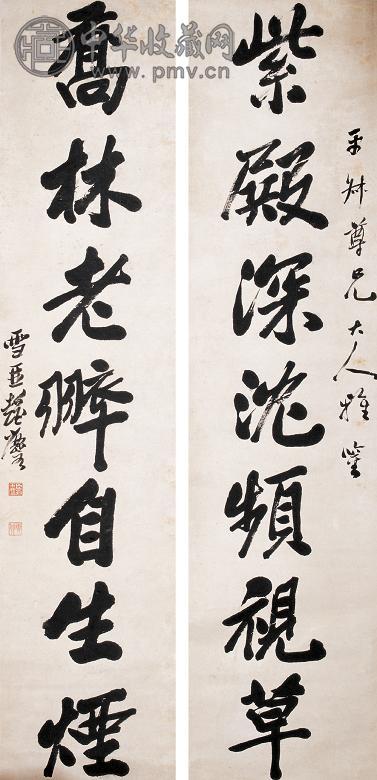 中华收藏网
www.pmv.cn
平叔尊兄大人雅鑒
紫殿深沈頻視草
喬林老翠自生煙
雪臣